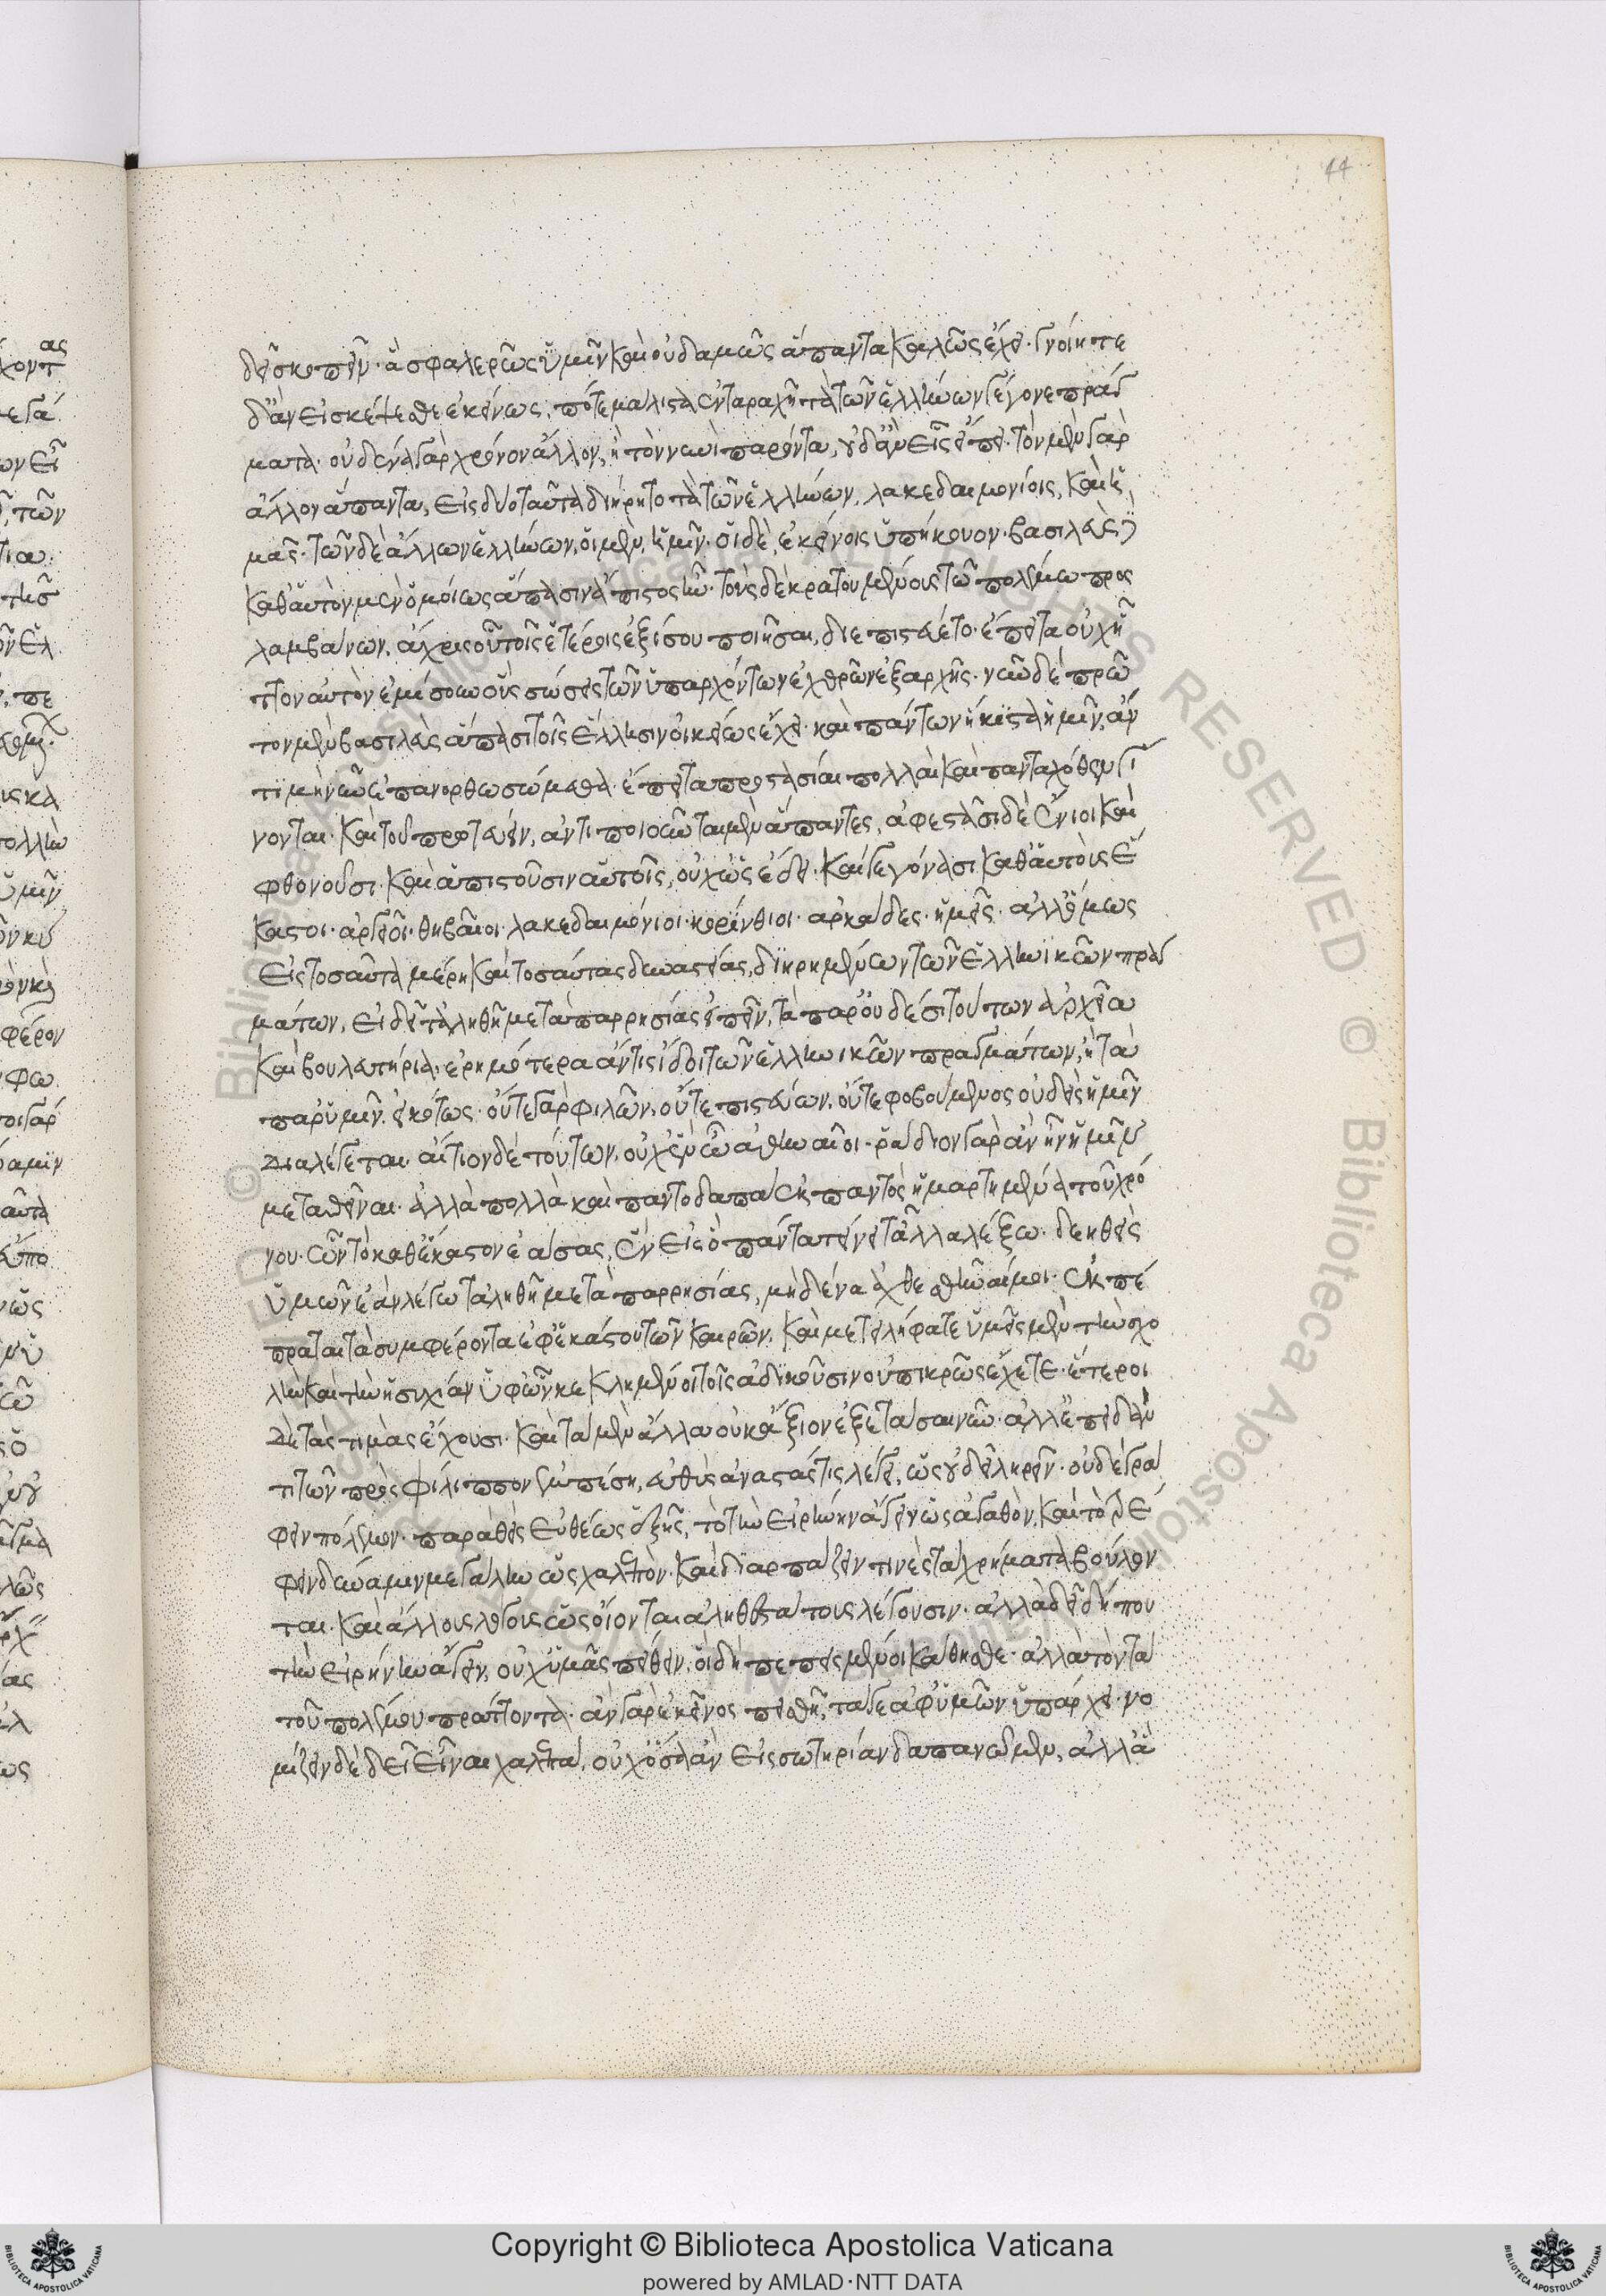 44
δεῖ σκοπεῖν· ἃ σφαλερῶς ὑμῖν καὶ οὐδαμῶς ἅπαντα καλῶς ἔχει· γνοίητε
δ' ἂν εἰ σκέψεσθε ἐκείνως, πότε μάλιστα ἐν ταραχῇ τὰ τῶν ἑλλήνων γέγονε πράγ
ματα· οὐδένα γὰρ χρόνον ἄλλον, ἢ τὸν νυνὶ παρόντα, οὐδ' ἂν εἷς εἴποι· τὸν μὲν γὰρ
ἄλλον ἅπαντα, εἰς δύο ταῦτα διῄρητο τὰ τῶν ἑλλήνων, λακεδαιμονίοις, καὶ ἡ
μᾶς· τῶν δὲ ἄλλων ἑλλήνων, οἱ μὲν, ἡμῖν· οἱ δὲ, ἐκείνοις ὑπήκουον· βασιλεὺς δὲ
καθ' αὑτὸν μὲν ὁμοίως ἅπασιν ἄπιστος ἦν· τοὺς δὲ κρατουμένους τῷ πολέμῳ προς
λαμβάνων, ἄχρις οὗ τοῖς ἑτέροις ἐξίσου ποιῆσαι, διεπιστεύετο· ἔπειτα οὐχ ἧτ
τον αὐτὸν ἐμίσουν οὓς σώσειε τῶν ὑπαρχόντων ἐχθρῶν ἐξαρχῆς· νῦν δὲ πρῶ
τον μὲν βασιλεὺς ἅπασι τοῖς ἕλλησιν οἰκείως ἔχει· καὶ πάντων ἥκιστα ἡμῖν, ἄν
τι μὴ νῦν ἐπανορθωσώμεθα· ἔπειτα προστασίαι πολλαὶ καὶ πανταχόθεν γί
νονται· καὶ τοῦ πρωτεύειν, ἀντιποιοῦνται μὲν ἅπαντες, ἀφεστᾶσι δὲ ἔνιοι καὶ
φθονοῦσι· καὶ ἀπιστοῦσιν αὑτοῖς, οὐχ ὡς ἔδει· καὶ γεγόνασι καθ' αὑτοὺς ἕ
καστοι· ἀργεῖοι· θηβαῖοι· λακεδαιμόνιοι· κορίνθιοι· ἀρκάδες· ἡμεῖς· ἀλλ' ὅμως
εἰς τοσαῦτα μέρη καὶ τοσαύτας δυναστείας, διῃρημένων τῶν ἑλληνικῶν πραγ
μάτων, εἰ δεῖ τἀληθῆ μετὰ παρρησίας εἰπεῖν, τὰ παρ' οὐδέσι τούτων ἀρχεῖα
καὶ βουλευτήρια, ἐρημότερα ἄν τις ἴδοι τῶν ἑλληνικῶν πραγμάτων, ἢ τὰ
παρ' ὑμῖν. εἰκότως· οὔτε γὰρ φιλῶν, οὔτε πιστεύων, οὔτε φοβούμενος οὐδεὶς ἡμῖν
διαλέγεται· αἴτιον δὲ τούτων, οὐχ ἓν ὦ ἀθηναῖοι· ῥάδιον γὰρ ἂν ἦν ἡμῖν
μεταθεῖναι· ἀλλὰ πολλὰ καὶ παντοδαπὰ ἐκ παντὸς ἡμαρτημένα τοῦ χρό
νου· ὧν τὸ καθ' ἕκαστον ἐάσας, ἓν εἰς ὃ πάντα τείνει τἆλλα λέξω· δεηθεὶς
ὑμῶν ἐὰν λέγω τἀληθῆ μετὰ παρρησίας, μηδένα ἀχθεσθῆναί μοι· ἐκπέ
πραται τὰ συμφέροντα ἐφ' ἑκάστου τῶν καιρῶν. καὶ μετειλήφατε ὑμεῖς μὲν τὴν σχο
λὴν καὶ τὴν ἡσυχίαν ὑφ' ὧν κεκλημένοι τοῖς ἀδικοῦσιν οὐ πικρῶς ἔχετε· ἕτεροι
δὲ τὰς τιμὰς ἔχουσι· καὶ τὰ μὲν ἄλλα οὐκ ἄξιον ἐξετάσαι νῦν· ἀλλ' ἐπειδάν
τι τῶν πρὸς φίλιππον ἐμπέσῃ, εὐθὺς ἀναστάς τις λέγει, ὡς οὐ δεῖ ληρεῖν· οὐδὲ γρά
φειν πόλεμον· παραθεὶς εὐθέως ἑξῆς, τὸ τὴν εἰρήνην ἄγειν ὡς ἀγαθὸν, καὶ τὸ τρέ
φειν δύναμιν μεγάλην ὡς χαλεπόν· καὶ διαρπάζειν τινὲς τὰ χρήματα βούλον
ται· καὶ ἄλλους λόγους ὡς οἴονται ἀληθεστάτους λέγουσιν· ἀλλὰ δεῖ δήπου
τὴν εἰρήνην ἄγειν, οὐχ ὑμᾶς πείθειν, οἳ δὴ πεπεισμένοι κάθησθε· ἀλλὰ τὸν τὰ
τοῦ πολέμου πράττοντα· ἂν γὰρ ἐκεῖνος πεισθῇ, τά γε ἀφ' ὑμῶν ὑπάρχει· νο
μίζειν δὲ δεῖ εἶναι χαλεπὰ, οὐχ ὅσα ἂν εἰς σωτηρίαν δαπανῶμεν, ἀλλ' ἃ
Copyright © Biblioteca Apostolica Vaticana
powered by AMLAD·NTT DATA